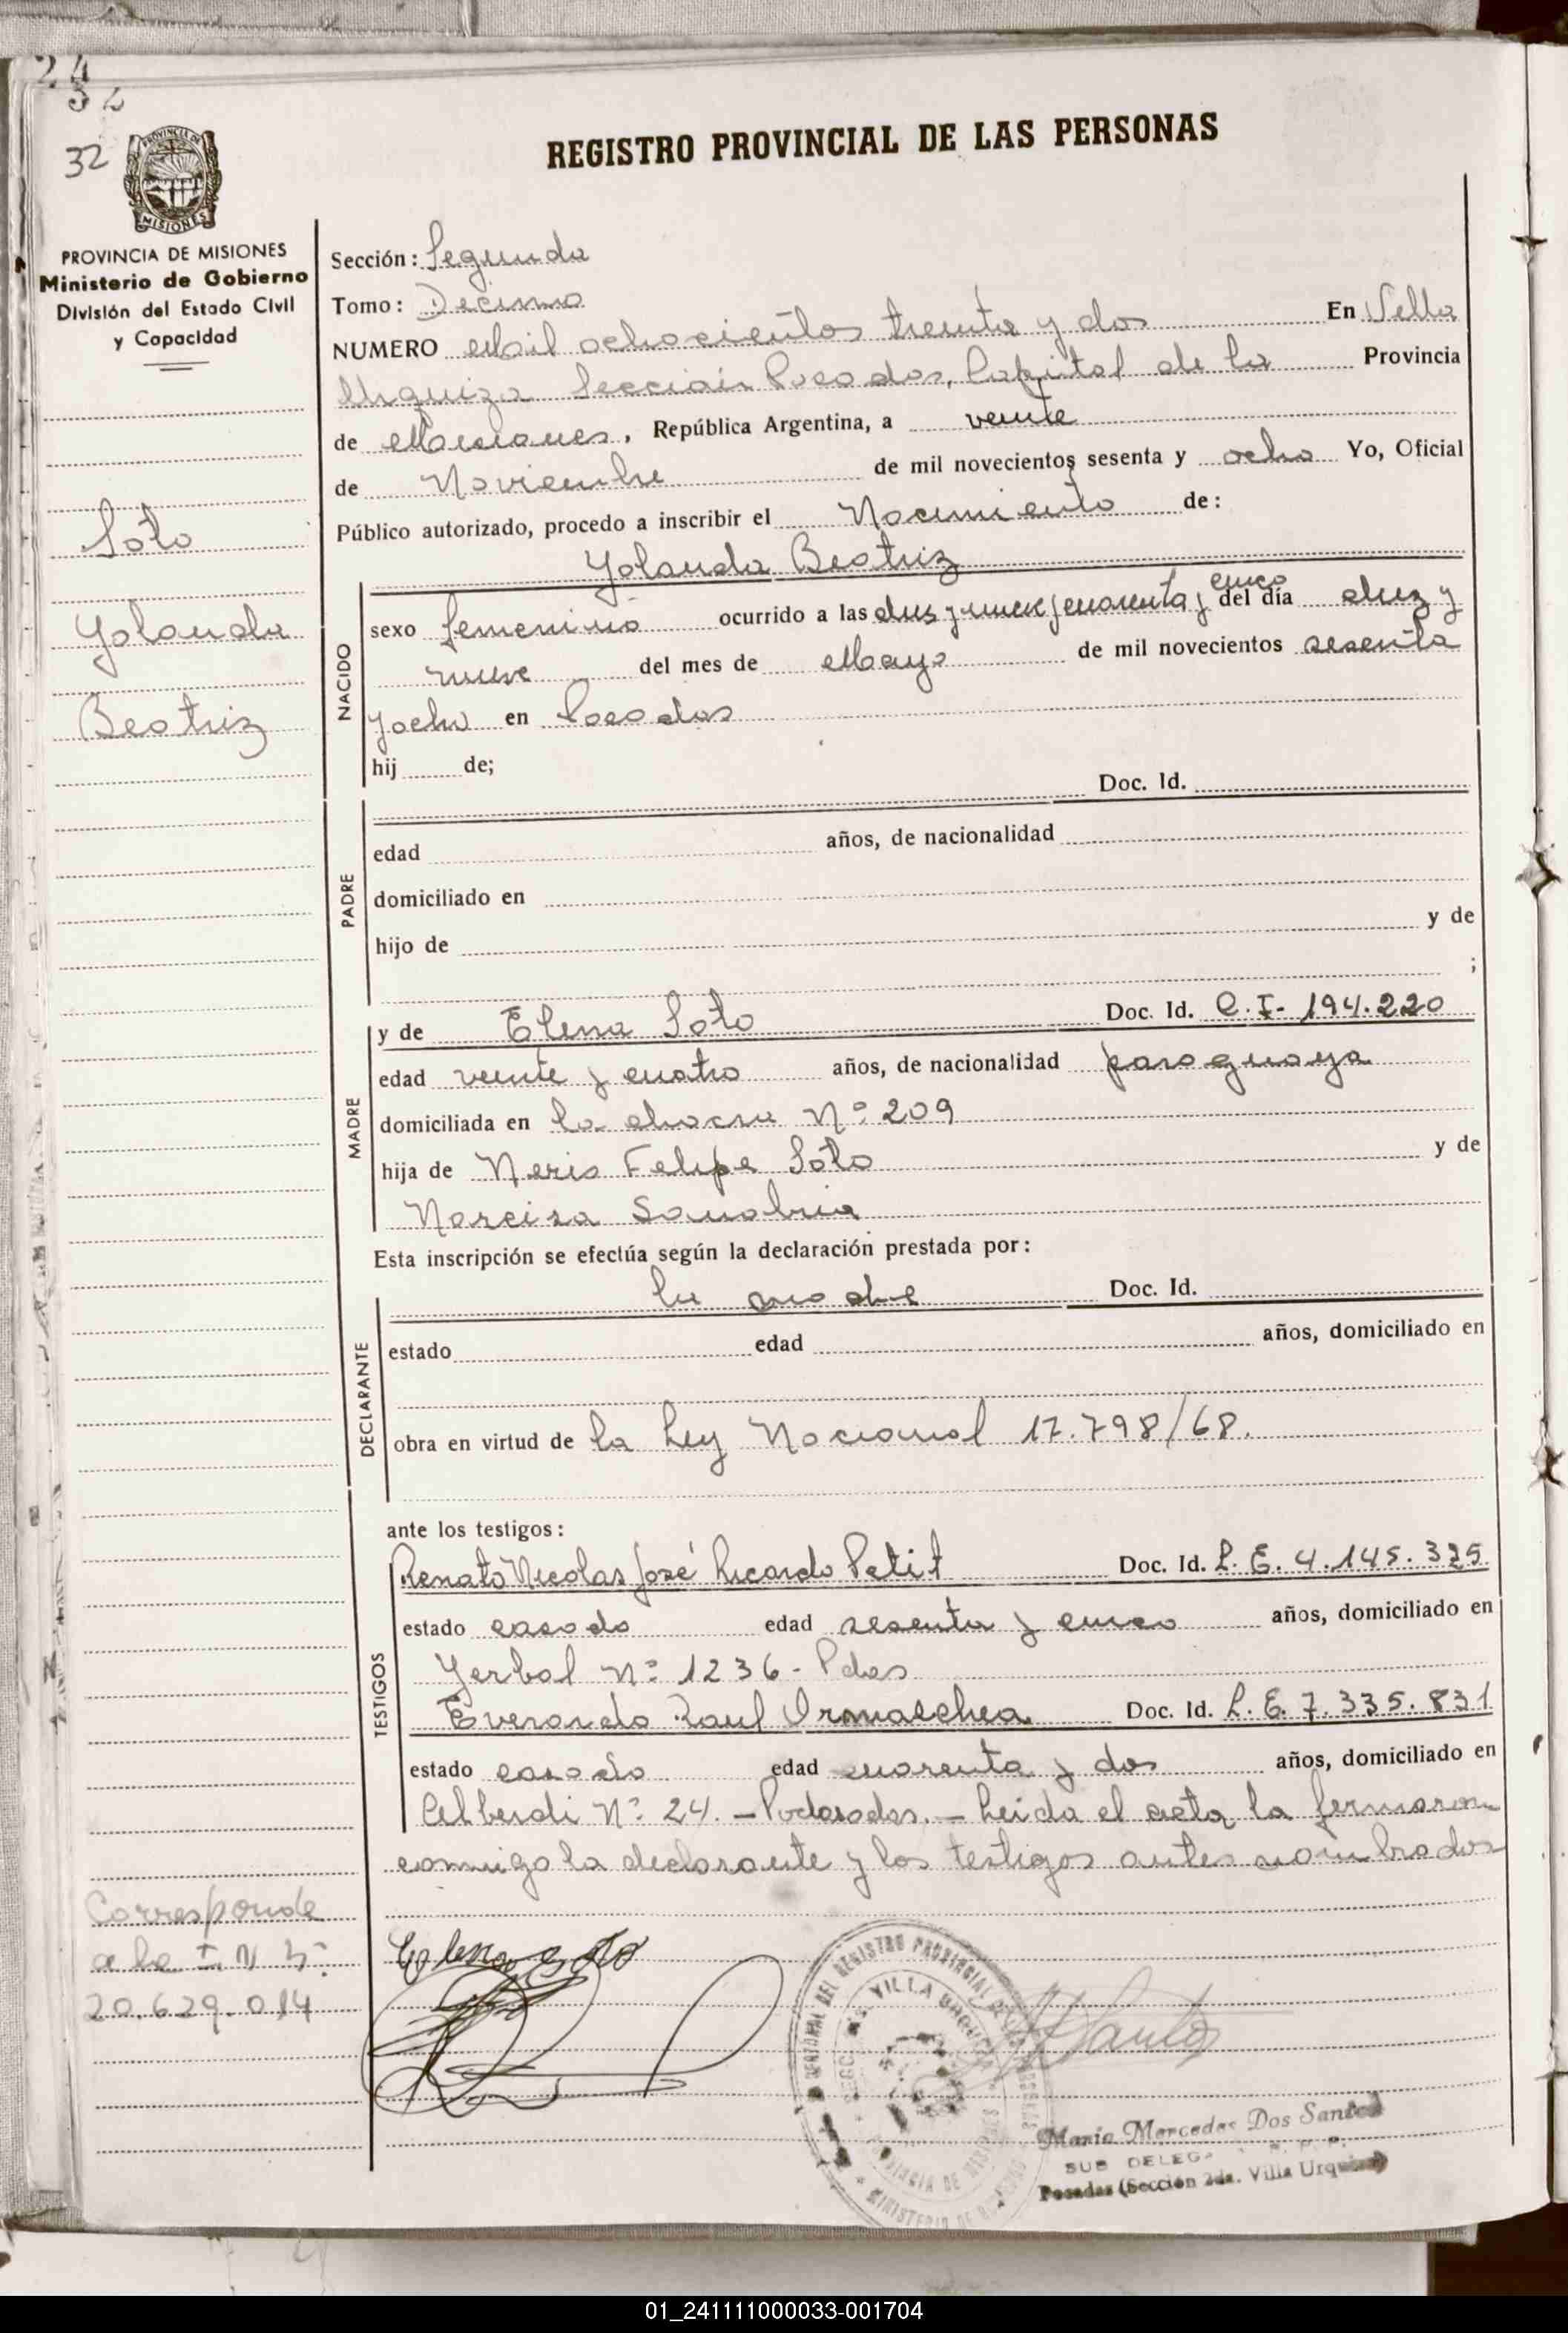 24
32
32
REGISTRO PROVINCIAL DE LAS PERSONAS
PROVINCIA DE
MISIONES
PROVINCIA DE MISIONES
Ministerio de Gobierno
División del Estado Civil
y Capacidad
Soto
Yolanda
Beatriz
Corresponde
a la I. N Nº
20.629.014
Sección: Segunda
Tomo: Decimo
NUMERO Mil ochocientos treinta y dos En Villa
Urquiza Sección Posadas, Capital de la Provincia
de Misiones, República Argentina, a veinte
de Noviembre de mil novecientos sesenta y ocho Yo, Oficial
Público autorizado, procedo a inscribir el Nacimiento de:
Yolanda Beatriz
NACIDO
sexo femenino ocurrido a las diez y nueve y cuarenta y cinco del día diez y
nueve del mes de Mayo de mil novecientos sesenta
y ocho en Posadas
hij de;
Doc. Id.
PADRE
edad años, de nacionalidad
domiciliado en
hijo de y de
;
MADRE
y de Elena Soto Doc. Id. C.I- 194.220
edad veinte y cuatro años, de nacionalidad paraguaya
domiciliada en la chacra Nº 209
hija de Neris Felipe Soto y de
Narcisa Sanabria
Esta inscripción se efectúa según la declaración prestada por:
DECLARANTE
la madre Doc. Id.
estado edad años, domiciliado en
obra en virtud de la Ley Nacional 17.798/68.
ante los testigos:
TESTIGOS
Renato Nicolas José Ricardo Petit Doc. Id. L. E. 4.145.325
estado casado edad sesenta y cinco años, domiciliado en
Yerbal Nº 1236- Pdas
Everardo Raul Ormaechea Doc. Id. L. E. 7.335.831
estado casado edad cuarenta y dos años, domiciliado en
Alberdi Nº 24. - - Leida el acta la firmaron
conmigo la declarante y los testigos antes nombrados
Elena Soto
Santos
VILLA URQUIZA
María Mercedes Dos Santos
SUB DELEG
Posadas (Sección 2da. Villa Urquiza)
01_241111000033-001704